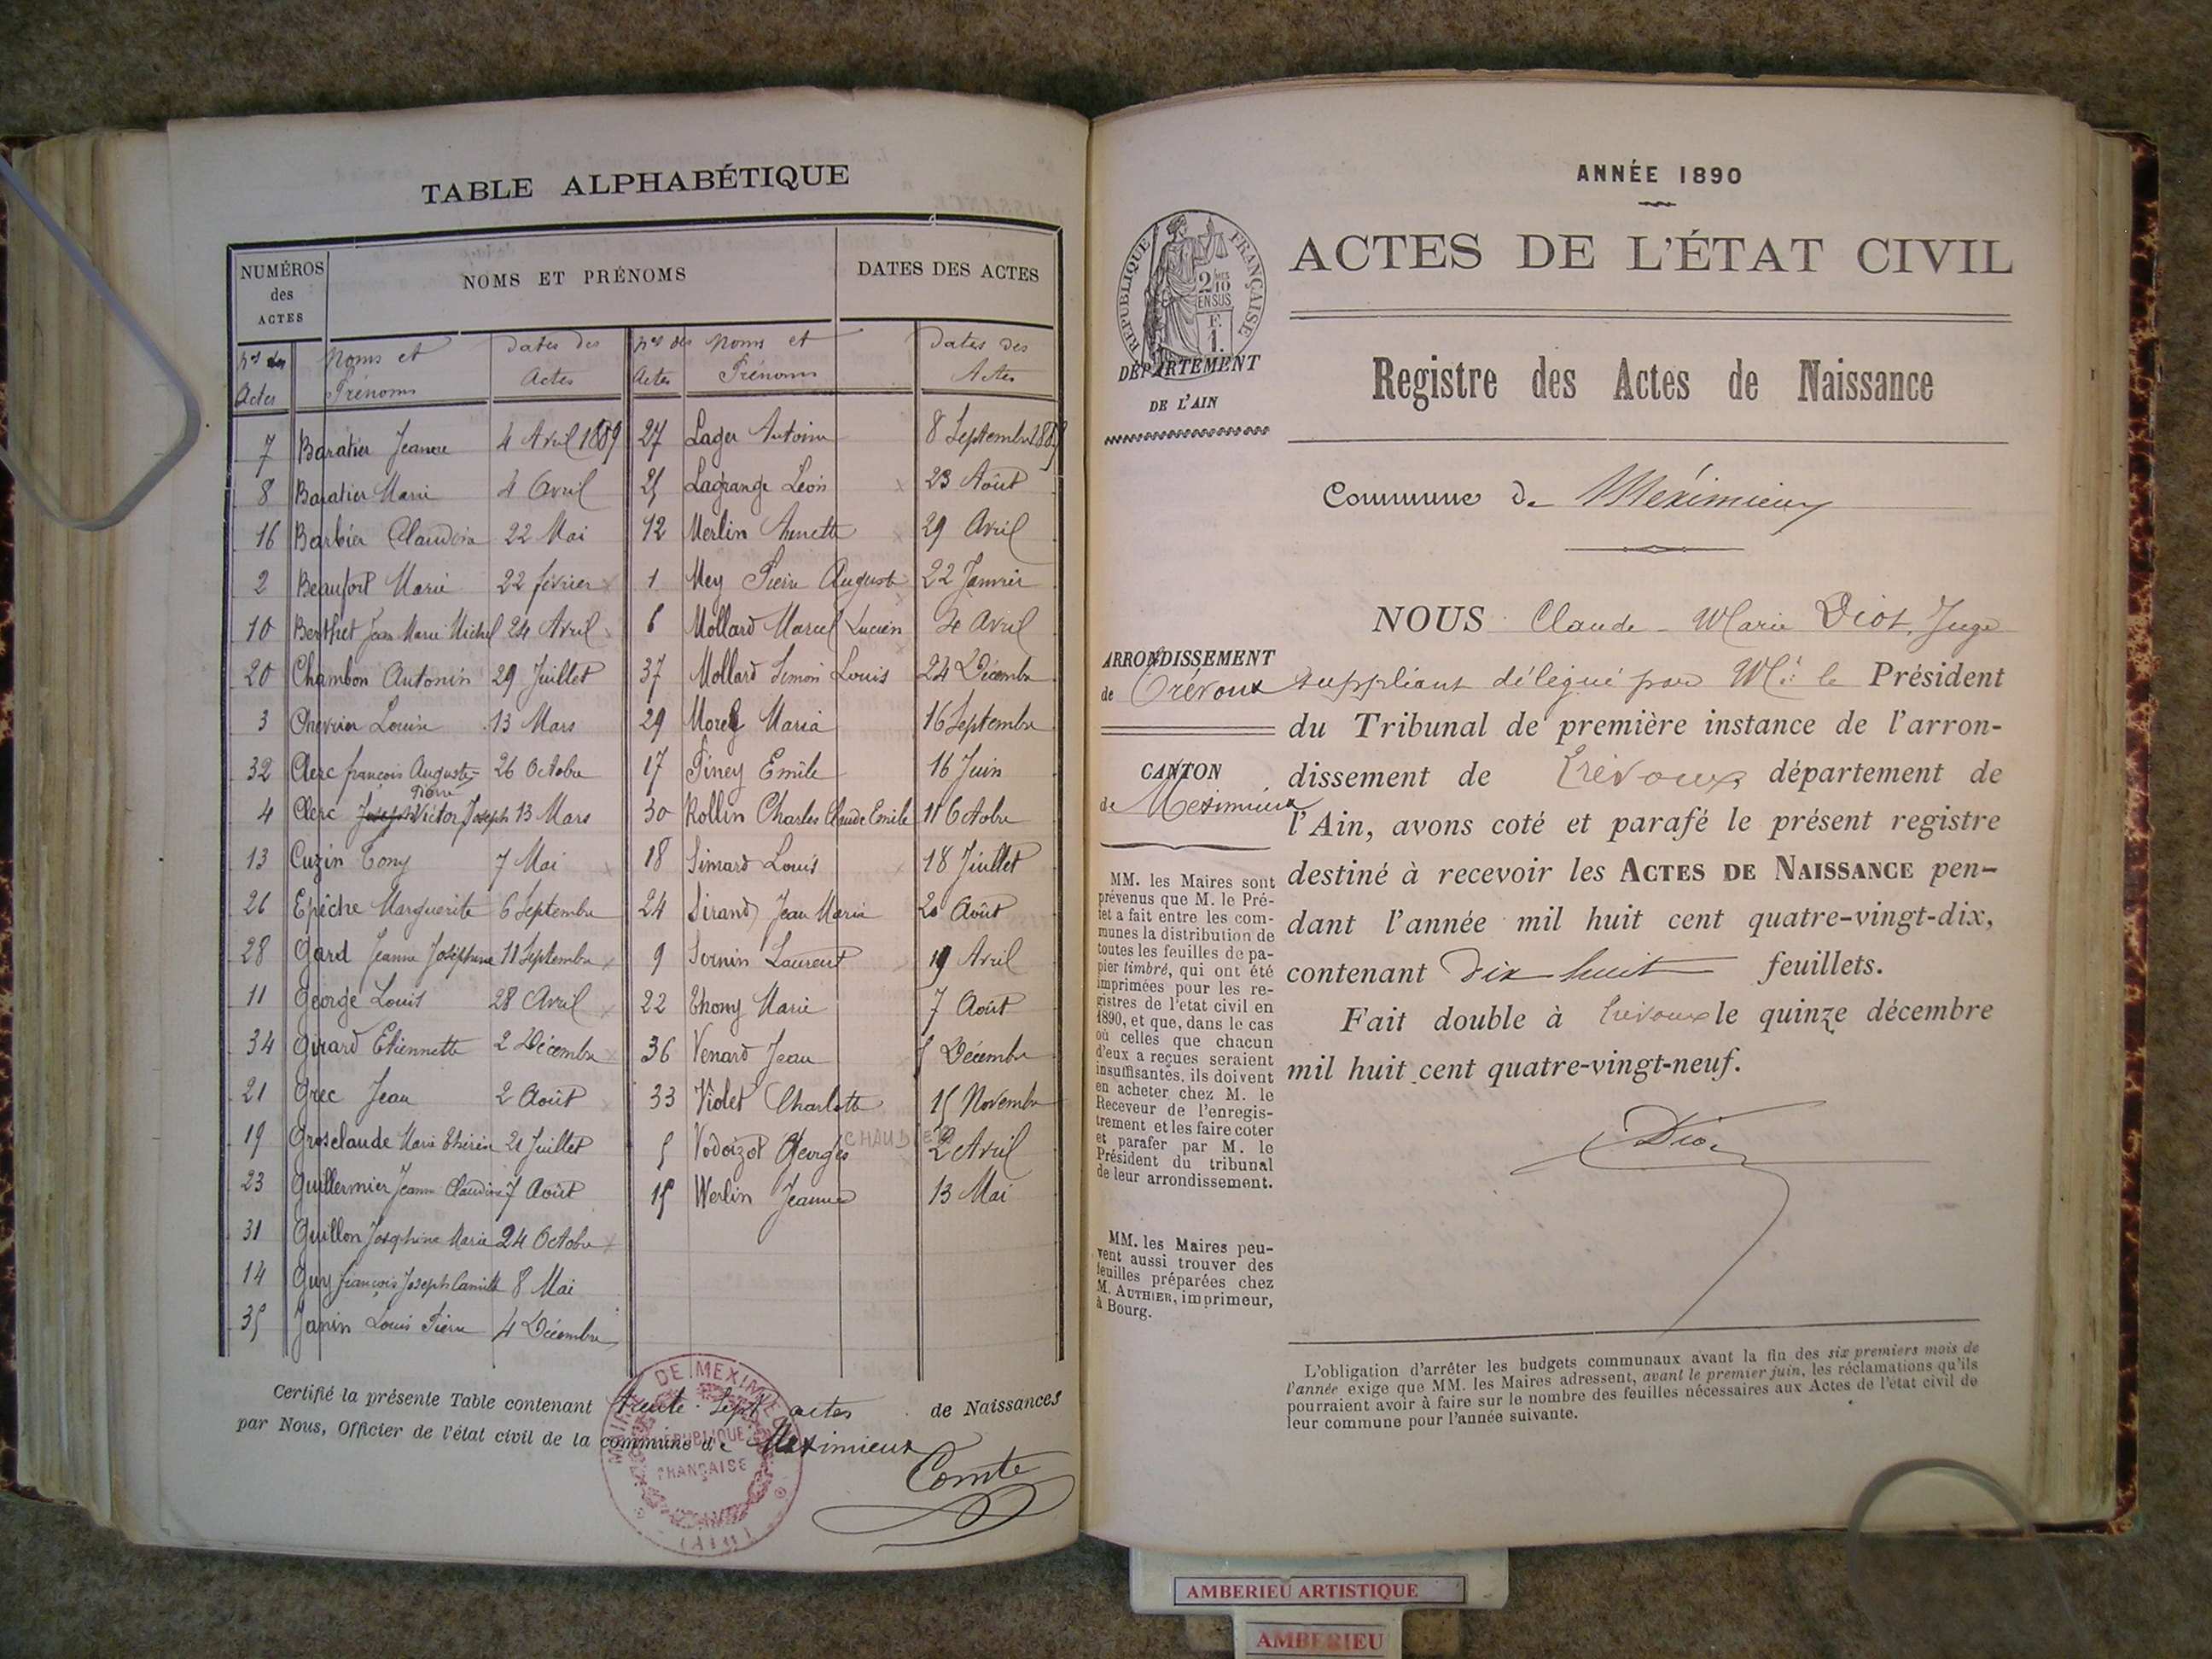 TABLE ALPHABÉTIQUE
NUMÉROS des ACTES
NOMS ET PRÉNOMS
DATES DES ACTES
nos des Actes
Noms et Prénoms
Dates des Actes
nos des Actes
Noms et Prénoms
Dates des Actes
7 Baratier Jeanne 4 Avril 1889
8 Baratier Marie 4 Avril
16 Barbier Claudia 22 Mai
2 Beaufort Marie 22 février
10 Berthet Jean Marie Michel 24 Avril
20 Chambon Antonin 29 Juillet
3 Chevrier Louise 13 Mars
32 Clerc françois Auguste 26 Octobre
Pierre
4 Clerc Joseph Victor Joseph 13 Mars
13 Cuzin Tony 7 Mai
26 Epêche Marguerite 6 Septembre
28 Gard Jeanne Joséphine 11 Septembre
11 George Louis 28 Avril
34 Girard Etiennette 2 Décembre
21 Grec Jean 2 Août
19 Grosclaude Marie Thérèse 21 Juillet
23 Guillermier Jeanne Claudine 7 Août
31 Guillon Joséphine Marie 24 Octobre
14 Guy françois Joseph Camille 8 Mai
35 Janin Louis Pierre 4 Décembre
27 Lager Antoine 8 Septembre 1889
25 Lagrange Léon 23 Août
12 Merlin Annette 29 Avril
1 Mey Pierre Auguste 22 Janvier
6 Mollard Marcel Lucien 4 Avril
37 Mollard Simon Louis 24 Décembre
29 Morel Maria 16 Septembre
17 Piney Emile 16 Juin
30 Rollin Charles Claude Emile 11 Octobre
18 Simard Louis 18 Juillet
24 Sirand Jean Marie 20 Août
9 Sornin Laurent 19 Avril
22 Thony Marie 7 Août
36 Venard Jean 5 Décembre
33 Violet Charlotte 15 Novembre
5 Vodoizot Georges CHAUDIER 2 Avril
15 Werlin Jeanne 13 Mai
Certifié la présente Table contenant trente-sept actes de Naissances
par Nous, Officier de l'état civil de la commune de Meximieux
Comte
MAIRIE DE MEXIMIEUX
RÉPUBLIQUE
FRANÇAISE
(AIN)
ANNÉE 1890
RÉPUBLIQUE FRANÇAISE
2/10
EN SUS
F.
1.
ACTES DE L'ÉTAT CIVIL
DÉPARTEMENT
DE L'AIN
Registre des Actes de Naissance
Commune de Meximieux
ARRONDISSEMENT
de Trévoux
CANTON
de Meximieux
NOUS Claude-Marie Diot, Juge
suppléant délégué par Mr le Président
du Tribunal de première instance de l'arron-
dissement de Trévoux département de
l'Ain, avons coté et parafé le présent registre
destiné à recevoir les ACTES DE NAISSANCE pen-
dant l'année mil huit cent quatre-vingt-dix,
contenant dix huit feuillets.
Fait double à Trévoux le quinze décembre
mil huit cent quatre-vingt-neuf.
Diot
MM. les Maires sont
prévenus que M. le Pré-
fet a fait entre les com-
munes la distribution de
toutes les feuilles de pa-
pier timbré, qui ont été
imprimées pour les re-
gistres de l'etat civil en
1890, et que, dans le cas
où celles que chacun
d'eux a reçues seraient
insuffisantes, ils doivent
en acheter chez M. le
Receveur de l'enregis-
trement et les faire coter
et parafer par M. le
Président du tribunal
de leur arrondissement.
MM. les Maires peu-
vent aussi trouver des
feuilles préparées chez
M. AUTHIER, imprimeur,
à Bourg.
L'obligation d'arrêter les budgets communaux avant la fin des six premiers mois de
l'année exige que MM. les Maires adressent, avant le premier juin, les réclamations qu'ils
pourraient avoir à faire sur le nombre des feuilles nécessaires aux Actes de l'état civil de
leur commune pour l'année suivante.
AMBERIEU ARTISTIQUE
AMBERIEU